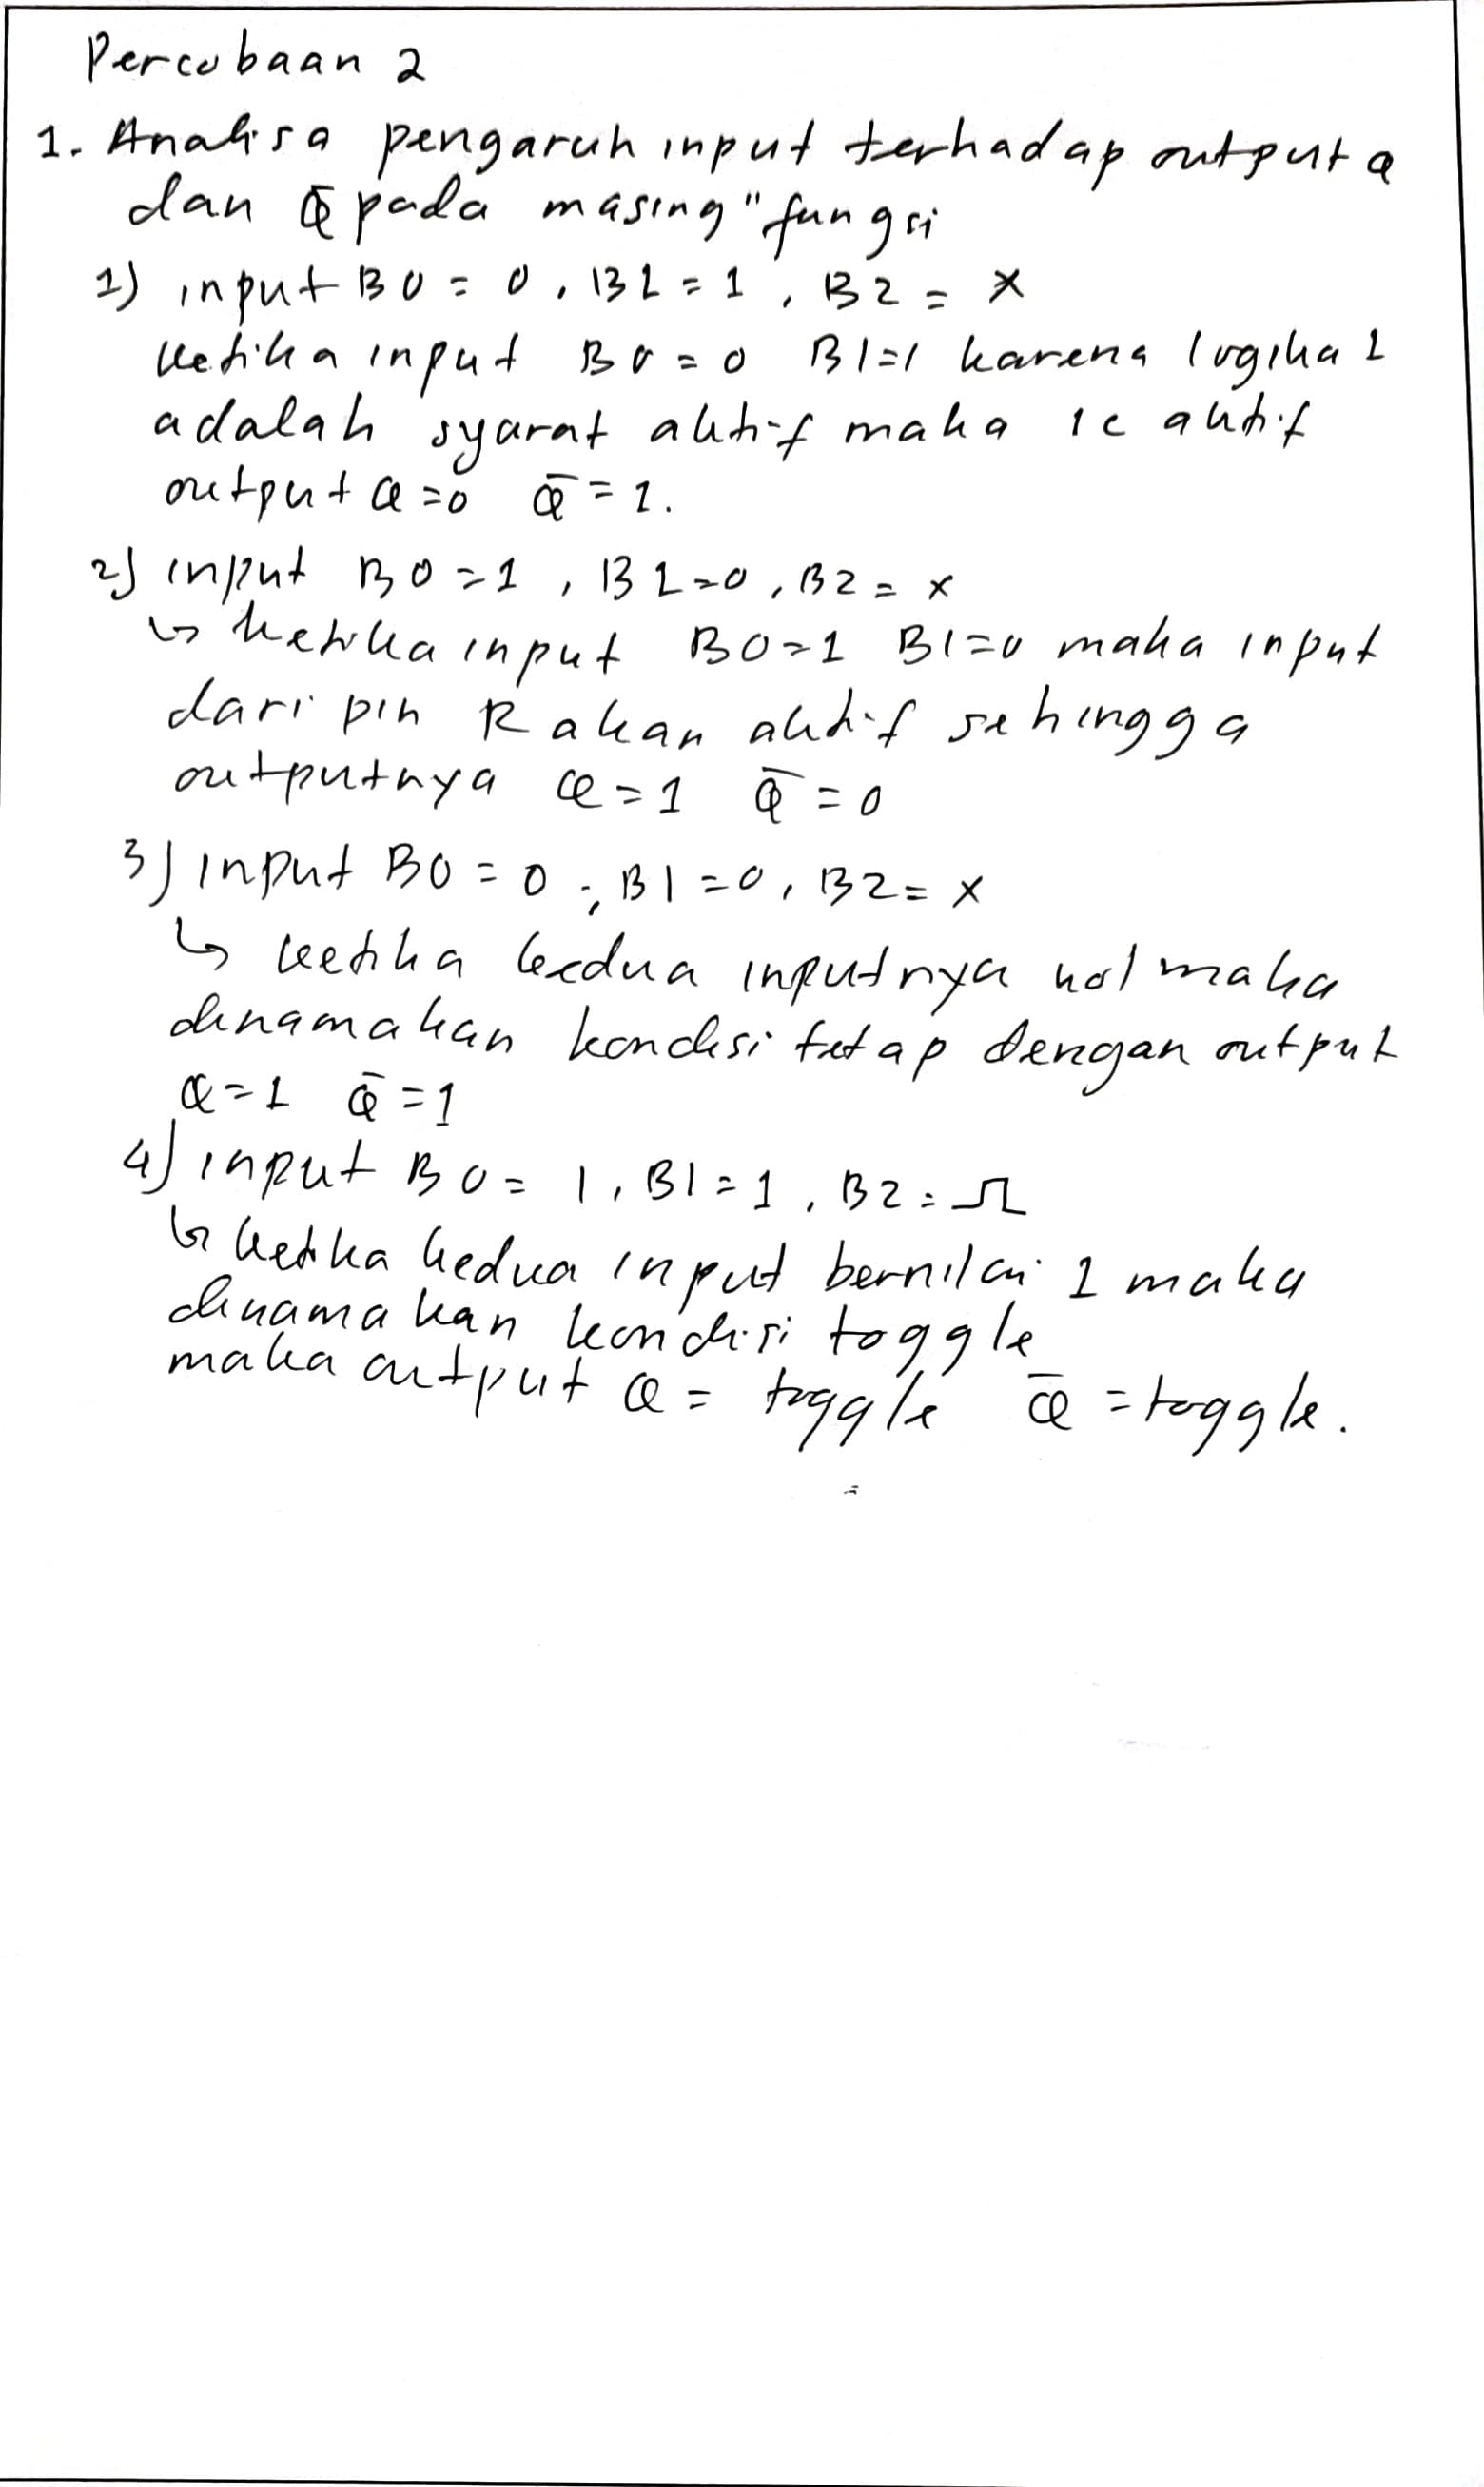 Percobaan 2
1. Analisa pengaruh input terhadap output Q
dan Q̅ pada masing" fungsi
1) input B0 = 0, B1 = 1, B2 = x
ketika input B0 = 0 B1=1 karena logika 1
adalah syarat aktif maka ic aktif
output Q=0 Q̅ = 1.
2) input B0 = 1, B1=0, B2 = x
↳ ketika input B0=1 B1=0 maka input
dari pin R akan aktif sehingga
outputnya Q=1 Q̅ = 0
3) input B0 = 0, B1 = 0, B2 = x
↳ ketika kedua inputnya nol maka
dinamakan kondisi tetap dengan output
Q=1 Q̅ = 1
4) input B0 = 1, B1 = 1, B2 = ⎍
↳ ketika kedua input bernilai 1 maka
dinamakan kondisi toggle
maka output Q = toggle Q̅ = toggle.